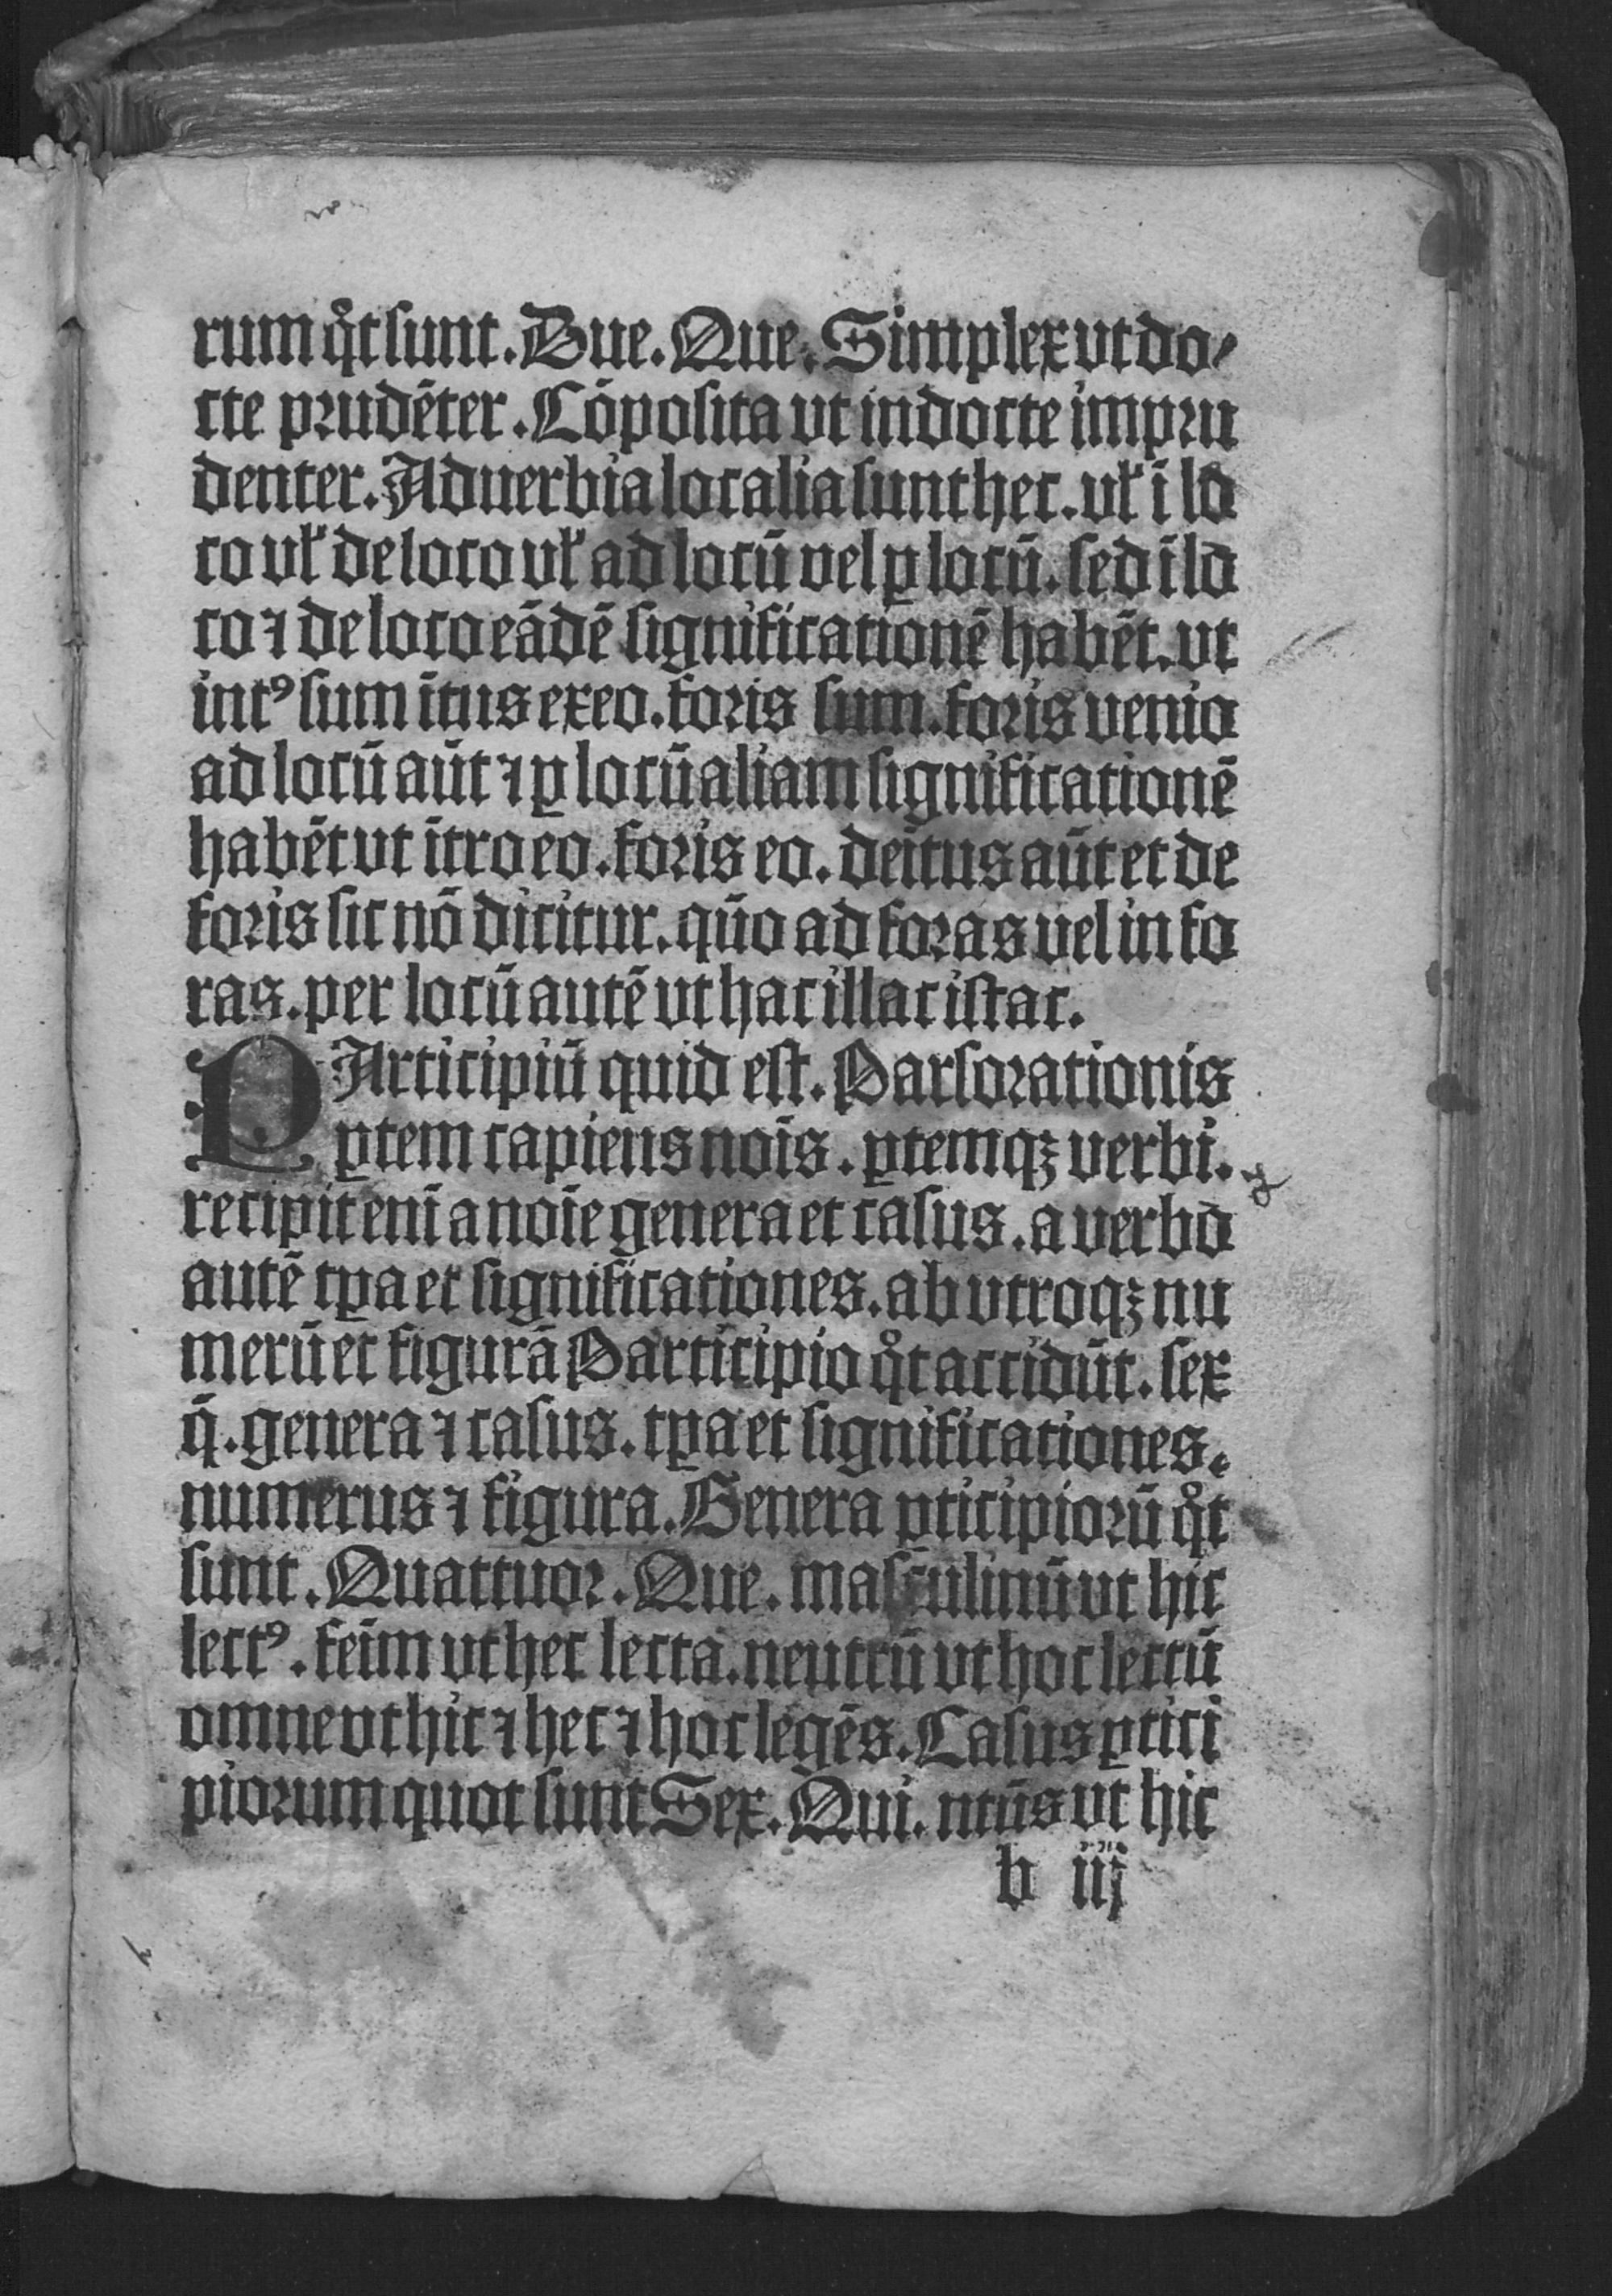 rum qͦt sunt. Due. Que. Simplex vt do⸗
cte prudēter. Cōposita vt indocte impru
denter. Aduerbia localia sunt hec. vl̓ ī lo
co vl̓ de loco vl̓ ad locū vel ꝑ locū. sed ī lo
co ⁊ de loco eādē significationē habēt. vt
intꝰ sum ītus exeo. foris sum. foris venio
ad locū aūt ⁊ ꝑ locū aliam significationē
habēt vt ītro eo. foris eo. deītus aūt et de
foris sic nō dicitur. qūo ad foras vel in fo
ras. per locū autē vt hac illac istac.
PArticipiū quid est. Pars orationis
ꝑtem capiens nōis. ꝑtemqꝫ verbi.
recipit enī a nōie genera et casus. a verbo
autē tꝑa et significationes. ab vtroqꝫ nu
merū et figurā Participio qͦt accidūt. sex
q̄. genera ⁊ casus. tꝑa et significationes.
numerus ⁊ figura. Genera ꝑticipiorū qͦt
sunt. Quattuor. Que. masculinū vt hic
lectꝰ. feīm vt hec lecta. neutrū vt hoc lectū
omne vt hic ⁊ hec ⁊ hoc legēs. Casus ꝑtici
piorum quot sunt Sex. Qui. ntūs vt hic
b iij